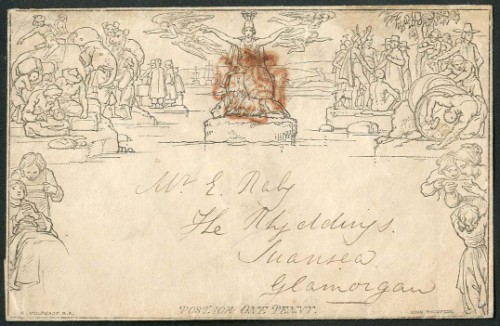 Mr. E. Raby
The Rhyddings.
Swansea
Glamorgan
W. MULREADY. R.A.
POSTAGE ONE PENNY.
JOHN THOMPSON